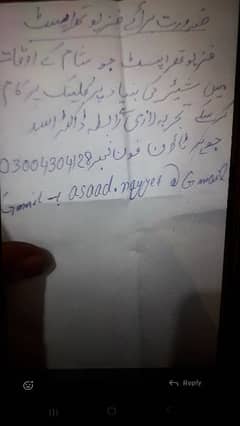 ضرورت برائے فزیوتھراپسٹ
فزیوتھراپسٹ جو شام کے اوقات
میں شیئر کی بنیاد پر کلینک پر کام
کر سکے تجربہ لازمی رابطہ ڈاکٹر اسد
جوہر ٹاؤن فون نمبر 03004304128
Gmail → asaad.nayyet @ Gmail
Reply